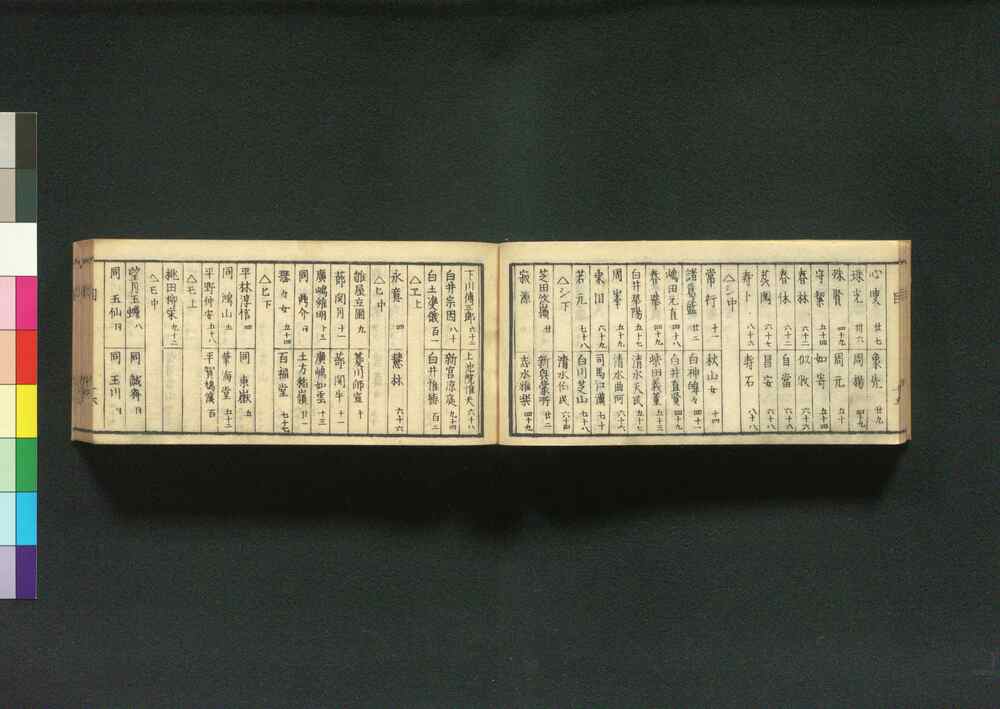 心叟 廿七 象先 廿九
珠光 卅六 周楊
珠賢 四十九 周元 五十
守繁 五十四 如寄 五十四
春林 六十二 似牧 六十六
春休 六十二 自當 六十六
六十七 昌安 六十八
寿卜 八十六 寿石 八十八
△シ中
常行 十一 秋山女 十四
諸葛監 廿二 白神皞々 四十一
嶋田元直 四十八 白井直賢 四十八
春華 四十九 柴田義董 五十四
白井華陽 五十七 清水天民 五十七
周峯 五十九 清水曲阿 六十六
東園 六十九 司馬江漢 七十一
若元 七十八 白川芝山 七十八
△シ下
清水伯民 六十四
芝田汶嶺 廿 新興蒙所 廿二
寂源 志水雅楽 四十九
下川傳三郎 六十二 上忠院准夫 六十八
白井宗因 八十 新宮凉庭 九十四
白土逸儀 百一 白井惟徳 百二
△ヱ上
永賽 四 慧林 六十六
△ヒ中
雛屋立圃 九 菱川師宣 十
蔀関月 十一 蔀関牛 十一
廣嶋雄明 十三 廣嶋如雲 十三
同 興介 同 土方稲嶺 廿一
琴々女 五十四 百福堂 七十七
△ヒ下
平林淳信 四 同 東嶽 五
同 鴻山 五 華海堂 五十二
平野仲安 五十八 平賀鳩溪 百
△モ上
桃田柳栄 九十二
△モ中
望月玉蟾 八 同 誠齊 同
同 玉仙 同 同 玉川 同